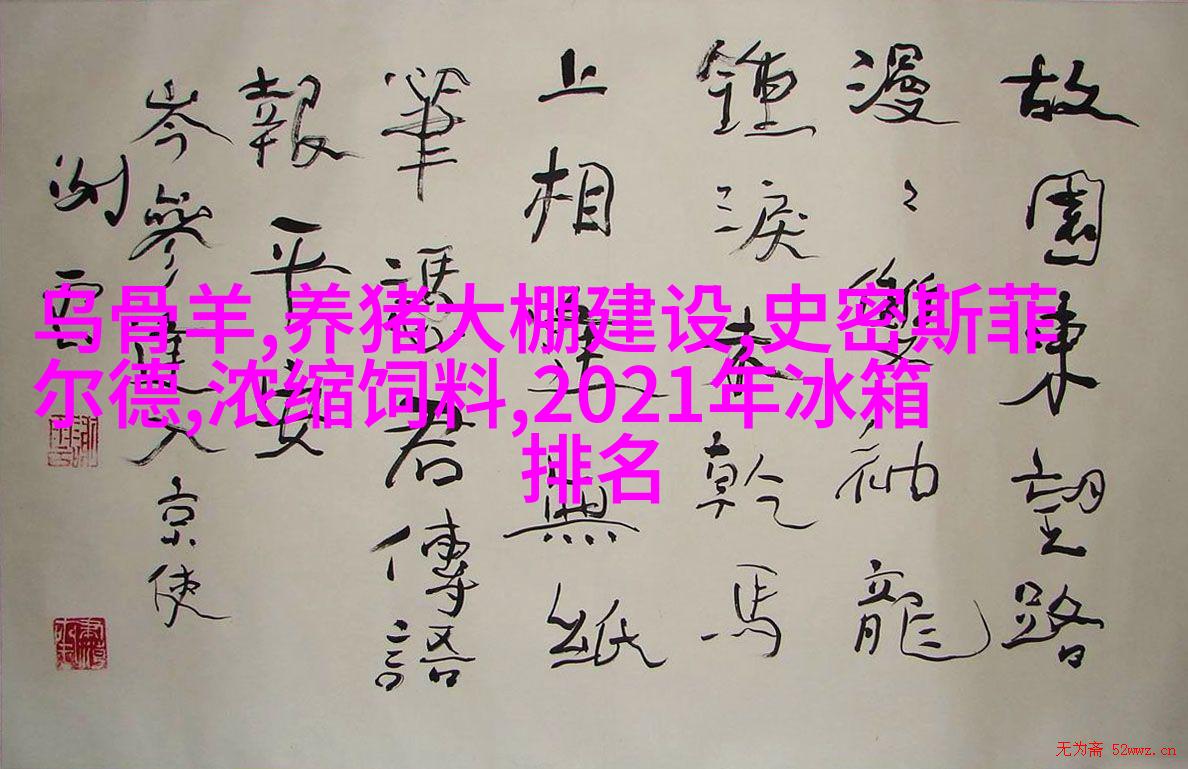 故園東望路
漫〻雙袖龍
鍾淚乾馬
上相逢無紙
筆憑君傳語
報平安
岑參逢入京使
乌骨羊,养猪大棚建设,史密斯菲
尔德,浓缩饲料,2021年冰箱
排名
无为斋 52wwz.cn